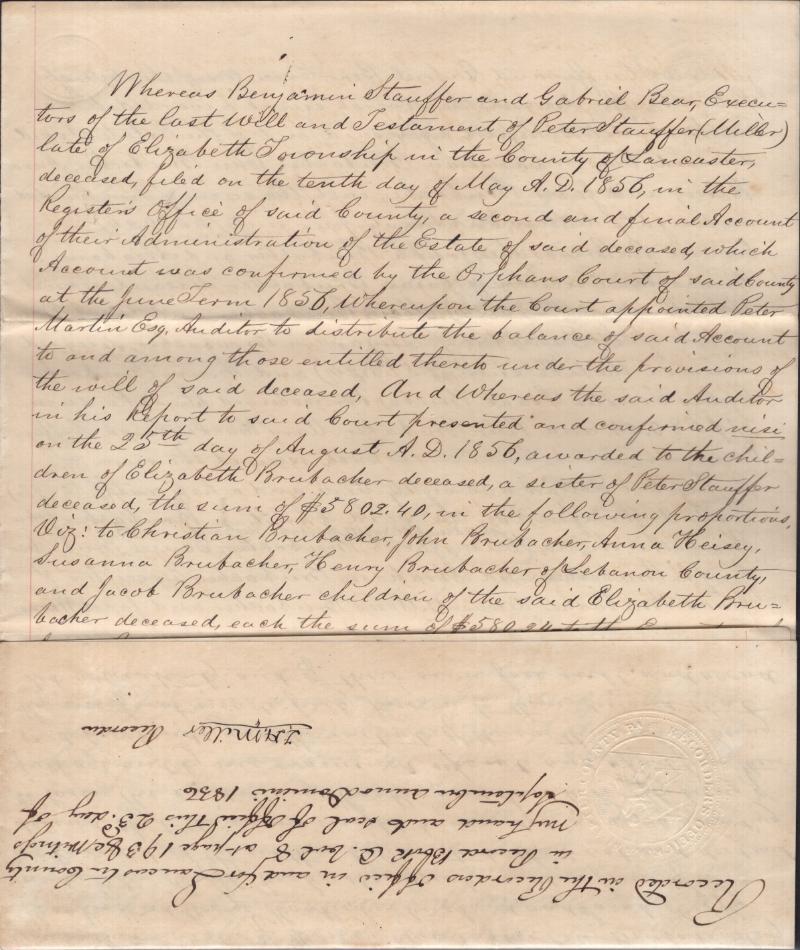 Whereas Benjamin Stauffer and Gabriel Bear, Execu=
tors of the last Will and Testament of Peter Stauffer (Miller)
late of Elizabeth Township in the County of Lancaster,
deceased, filed on the tenth day of May A.D. 1856, in the
Register's Office of said County, a second and final Account
of their Administration of the Estate of said deceased, which
Account was confirmed by the Orphans Court of said County
at the June Term 1856, Whereupon the Court appointed Peter
Martin Esq. Auditor to distribute the balance of said Account
to and among those entitled thereto under the provisions of
the will of said deceased, And Whereas the said Auditor
in his Report to said Court presented and confirmed nisi
on the 25th day of August A.D. 1856, awarded to the chil=
dren of Elizabeth Brubacher deceased, a sister of Peter Stauffer
deceased, the sum of $5802.40, in the following proportions,
Viz: to Christian Brubacher, John Brubacher, Anna Heisey,
Susanna Brubacher, Henry Brubacher of Lebanon County,
and Jacob Brubacher children of the said Elizabeth Bru=
bacher deceased, each the sum of $580.24 to the
Recorded in the Recorders Office in and for Lancaster County
in Record Book Vol 8 at page 193 &c Witness
my hand and seal of Office this 23d day of
September Anno Domini 1856
Miller Recorder